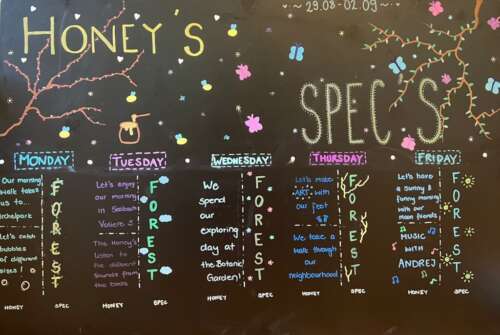 ~ 29.08-02.09 ~
HONEY'S
SPEC'S
MONDAY
Our morning
walk takes
us to...
Irchelpark
Let's catch
bubbles
of different
sizes !
FOREST
HONEY SPEC
TUESDAY
Let's enjoy
our morning
in Seebach
Voliere :)
This Honey's
Listen to
the different
Sounds from
the birds
FOREST
HONEY SPEC
WEDNESDAY
We
spend
our
exploring
day at
the Botanic
Garden!
FOREST
HONEY SPEC
THURSDAY
Let's make
ART with
our feet
We take a
walk through
our
neighbourhood
FOREST
HONEY SPEC
FRIDAY
Let's have
a sunny &
funny morning
with our
friends
MUSIC
WITH
ANDREJ
FOREST
HONEY SPEC